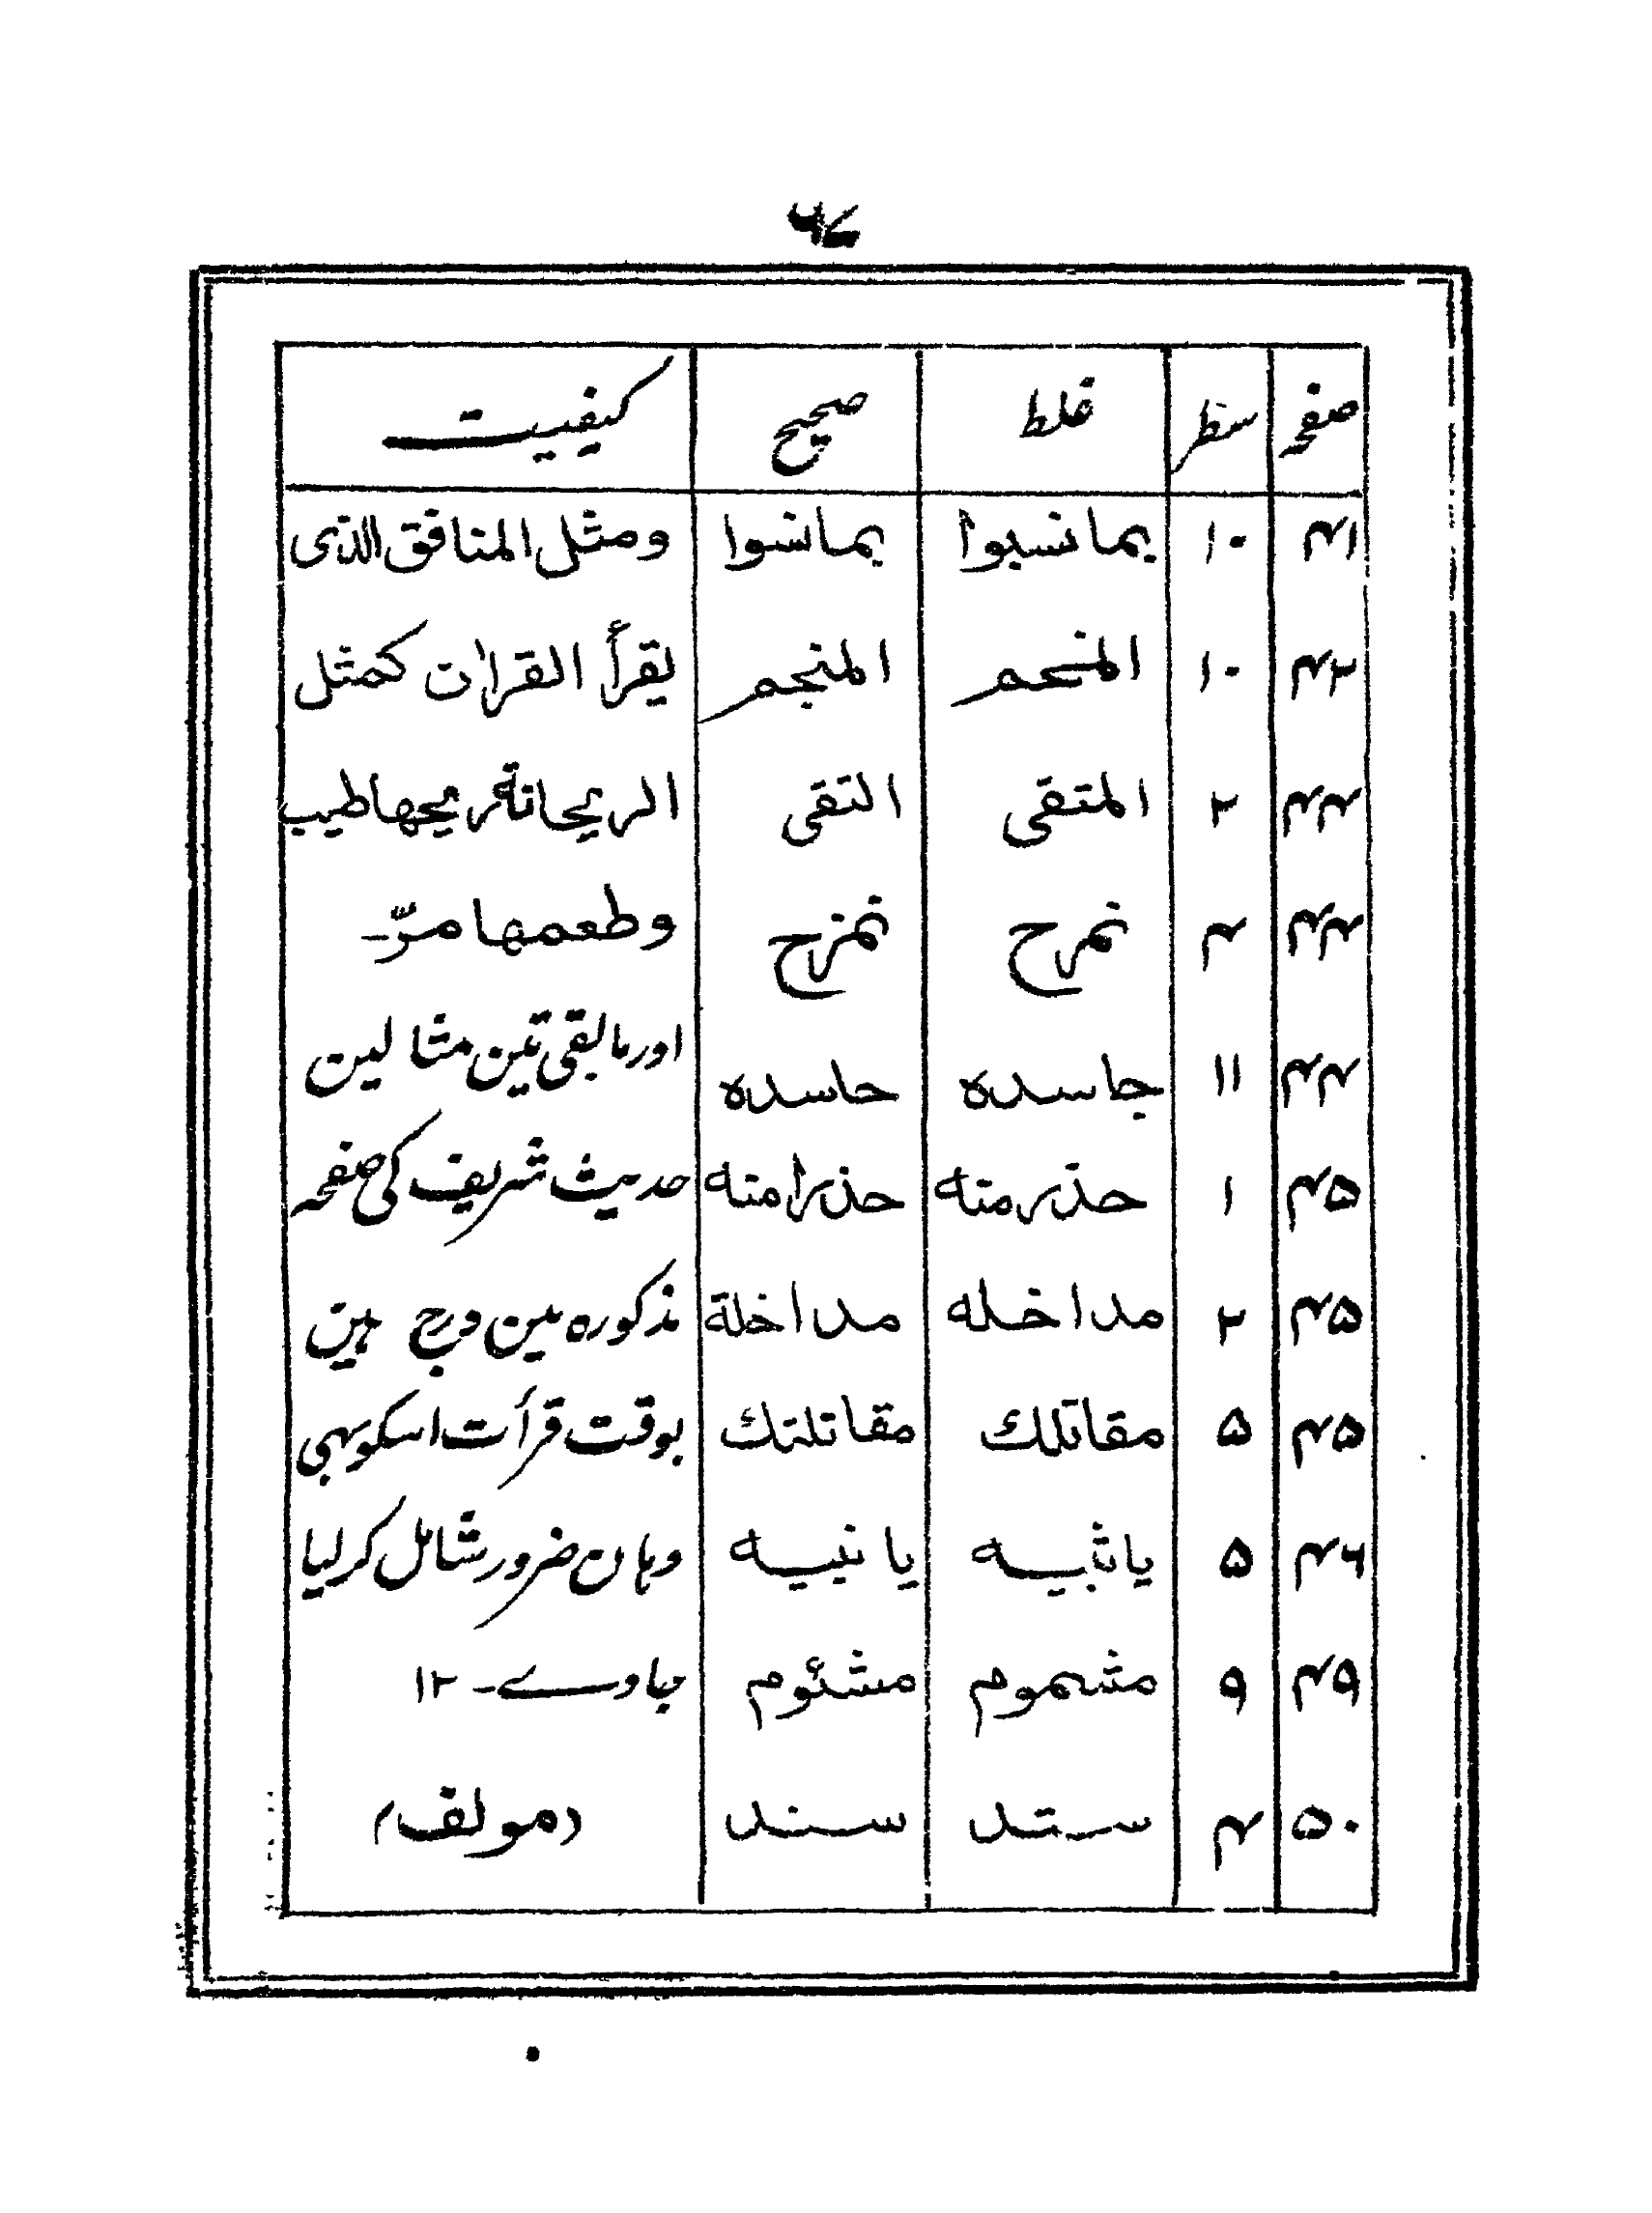 ۶۷
صفحہ سطر غلط صحیح کیفییت
۴۱ ۱۰ یمانسبوا یمانسوا ومثل المنافق الذی
۴۲ ۱۰ المنحم المنجم یقرأ القرانٰ کمثل
۴۴ ۲ المتقی التقی الریحانة ریحها طیب
۴۴ ۴ تمرح تمزح وطعمها مرّ۔
۴۴ ۱۱ جاسده حاسده اور مابقی تین مثالین
۴۵ ۱ حذرمته حذرامته حدیث شریف کی صفحہ
۴۵ ۲ مداخله مداخلة مذکورہ مین درج ہین
۴۵ ۵ مقاتلك مقاتلتك بوقت قرأت اسکو بہی
۴۶ ۵ یاثبیه یانبیه وہان ضرور شامل کر لیا
۴۹ ۹ مشموم مشئوم جاوے۔ ۱۲
۵۰ ۴ ستد سند (مولف)